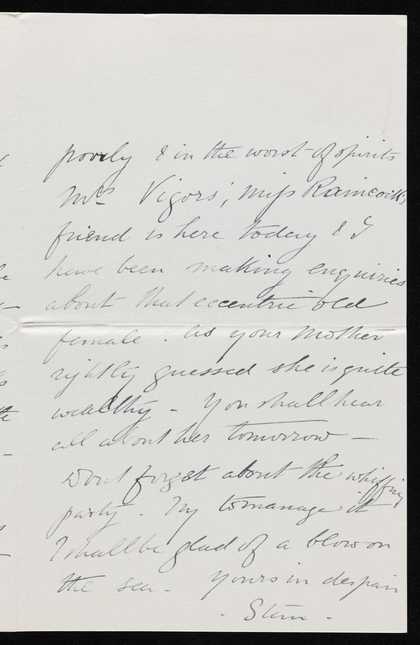 poorly & in the worst of spirits
Mrs Vigors', Miss Raincock's
friend is here today & I
have been making enquiries
about that eccentric old
female. As your Mother
rightly guessed she is quite
wealthy - You shall hear
all about her tomorrow -
Dont forget about the whiffing
party. Try to manage it
I shall be glad of a blow on
the sea. Yours in despair
- Stem -